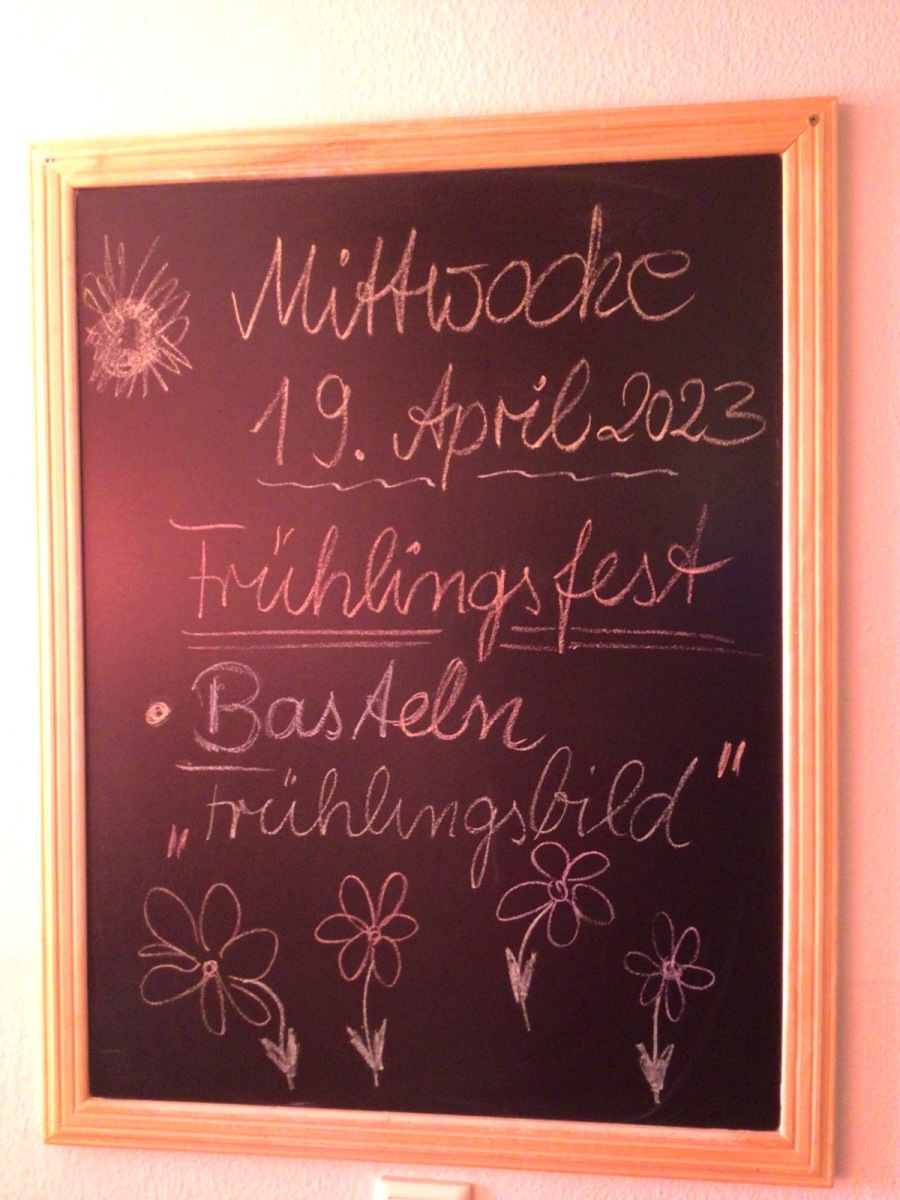 Mittwoche
19. April 2023
Frühlingsfest
• Basteln
„Frühlingsbild"